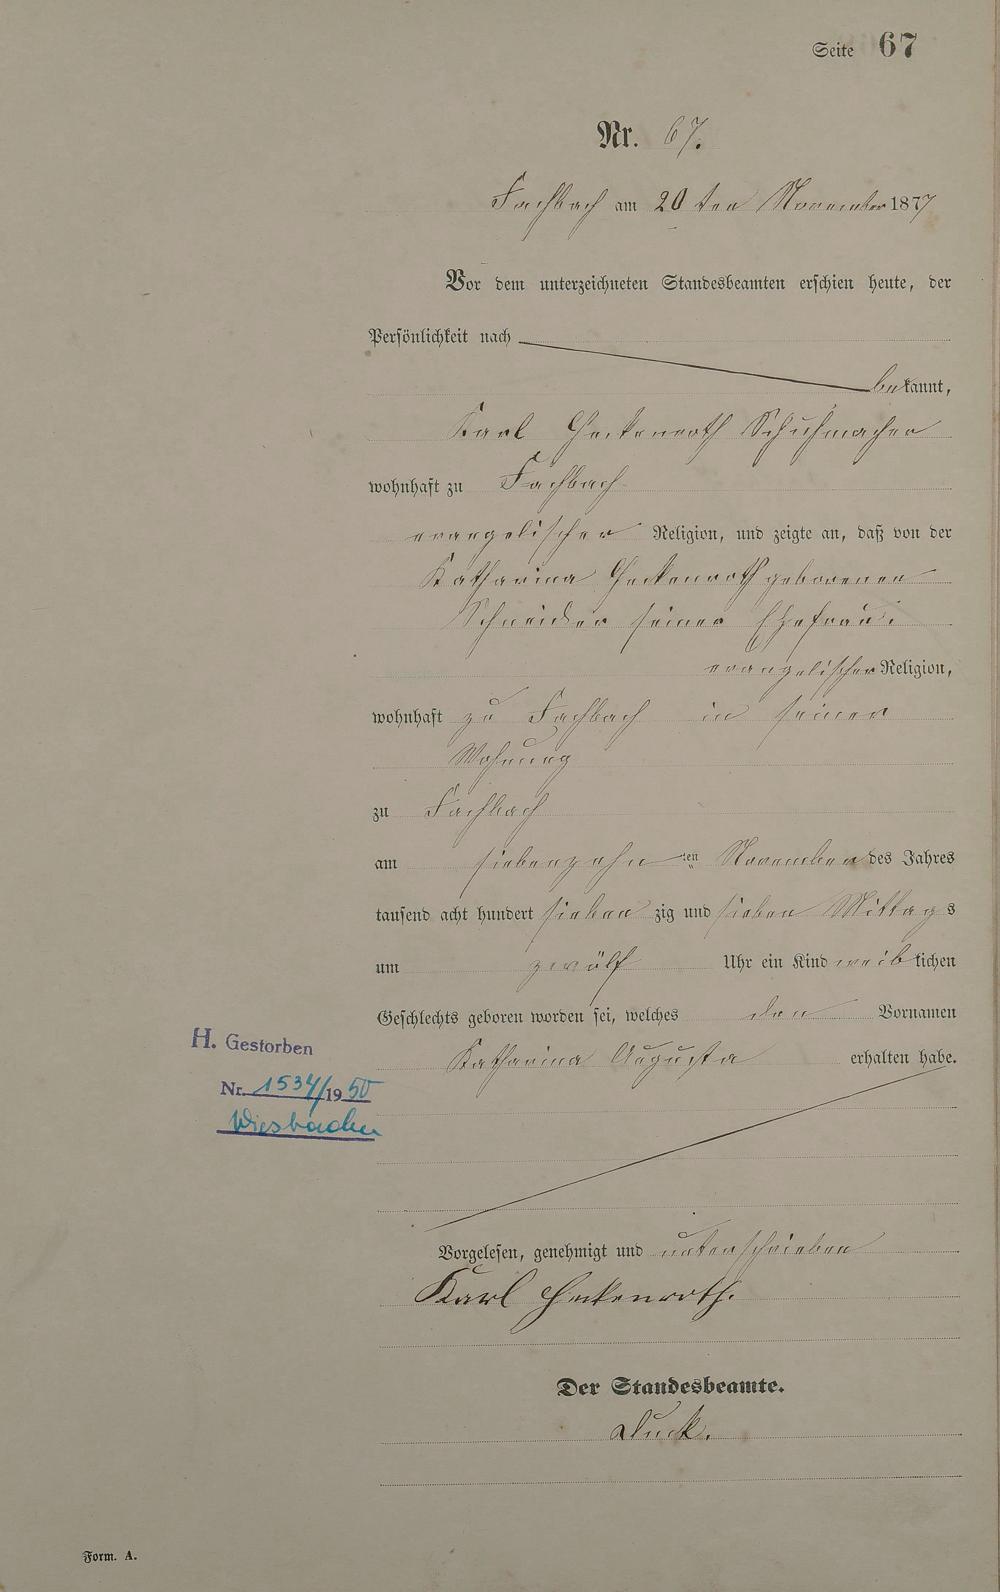 Seite 67
Nr. 67.
Fachbach am 20 ten November 1877
Vor dem unterzeichneten Standesbeamten erschien heute, der
Persönlichkeit nach
bekannt,
Karl Heckenroth Schuhmacher
wohnhaft zu Fachbach
evangelischer Religion, und zeigte an, daß von der
Katharina Heckenroth geborenen
Schneider seiner Ehefrau.
evangelischer Religion,
wohnhaft zu Fachbach in seiner
Wohnung
zu Fachbach
am siebenzehn ten November des Jahres
tausend acht hundert sieben zig und sieben Mittags
um zwölf Uhr ein Kind weiblichen
Geschlechts geboren worden sei, welches den Vornamen
Katharina Augusta erhalten habe.
H. Gestorben
Nr. 1534/1950
Wiesbaden
Vorgelesen, genehmigt und unterschrieben
Karl Heckenroth.
Der Standesbeamte.
Form. A.